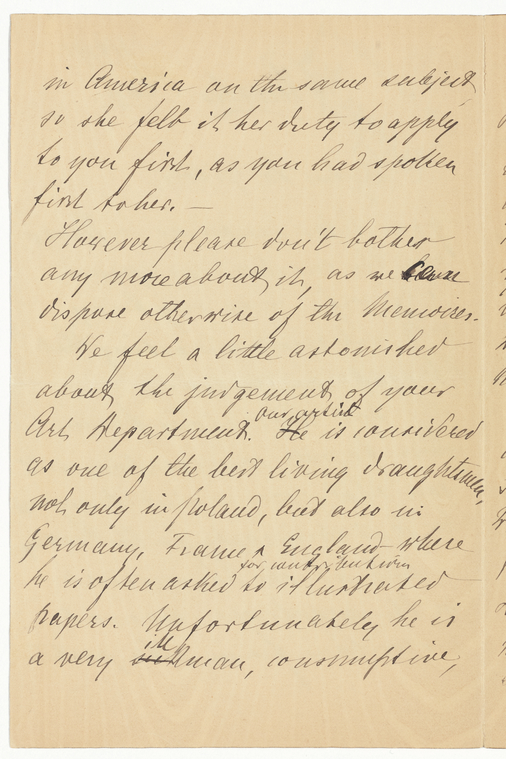 in America on the same subject
so she felt it her duty to apply
to you first, as you had spoken
first to her. —
However please don't bother
any more about it, as we can
dispose otherwise of the Memoires.
We feel a little astonished
about the judgement of your
our artist
Art Department. He is considered
as one of the best living draughtsmen,
not only in Poland, but also in
Germany, France & England where
for contributions
he is often asked to illustrated
papers. Unfortunately he is
ill
a very sick man, consumptive,